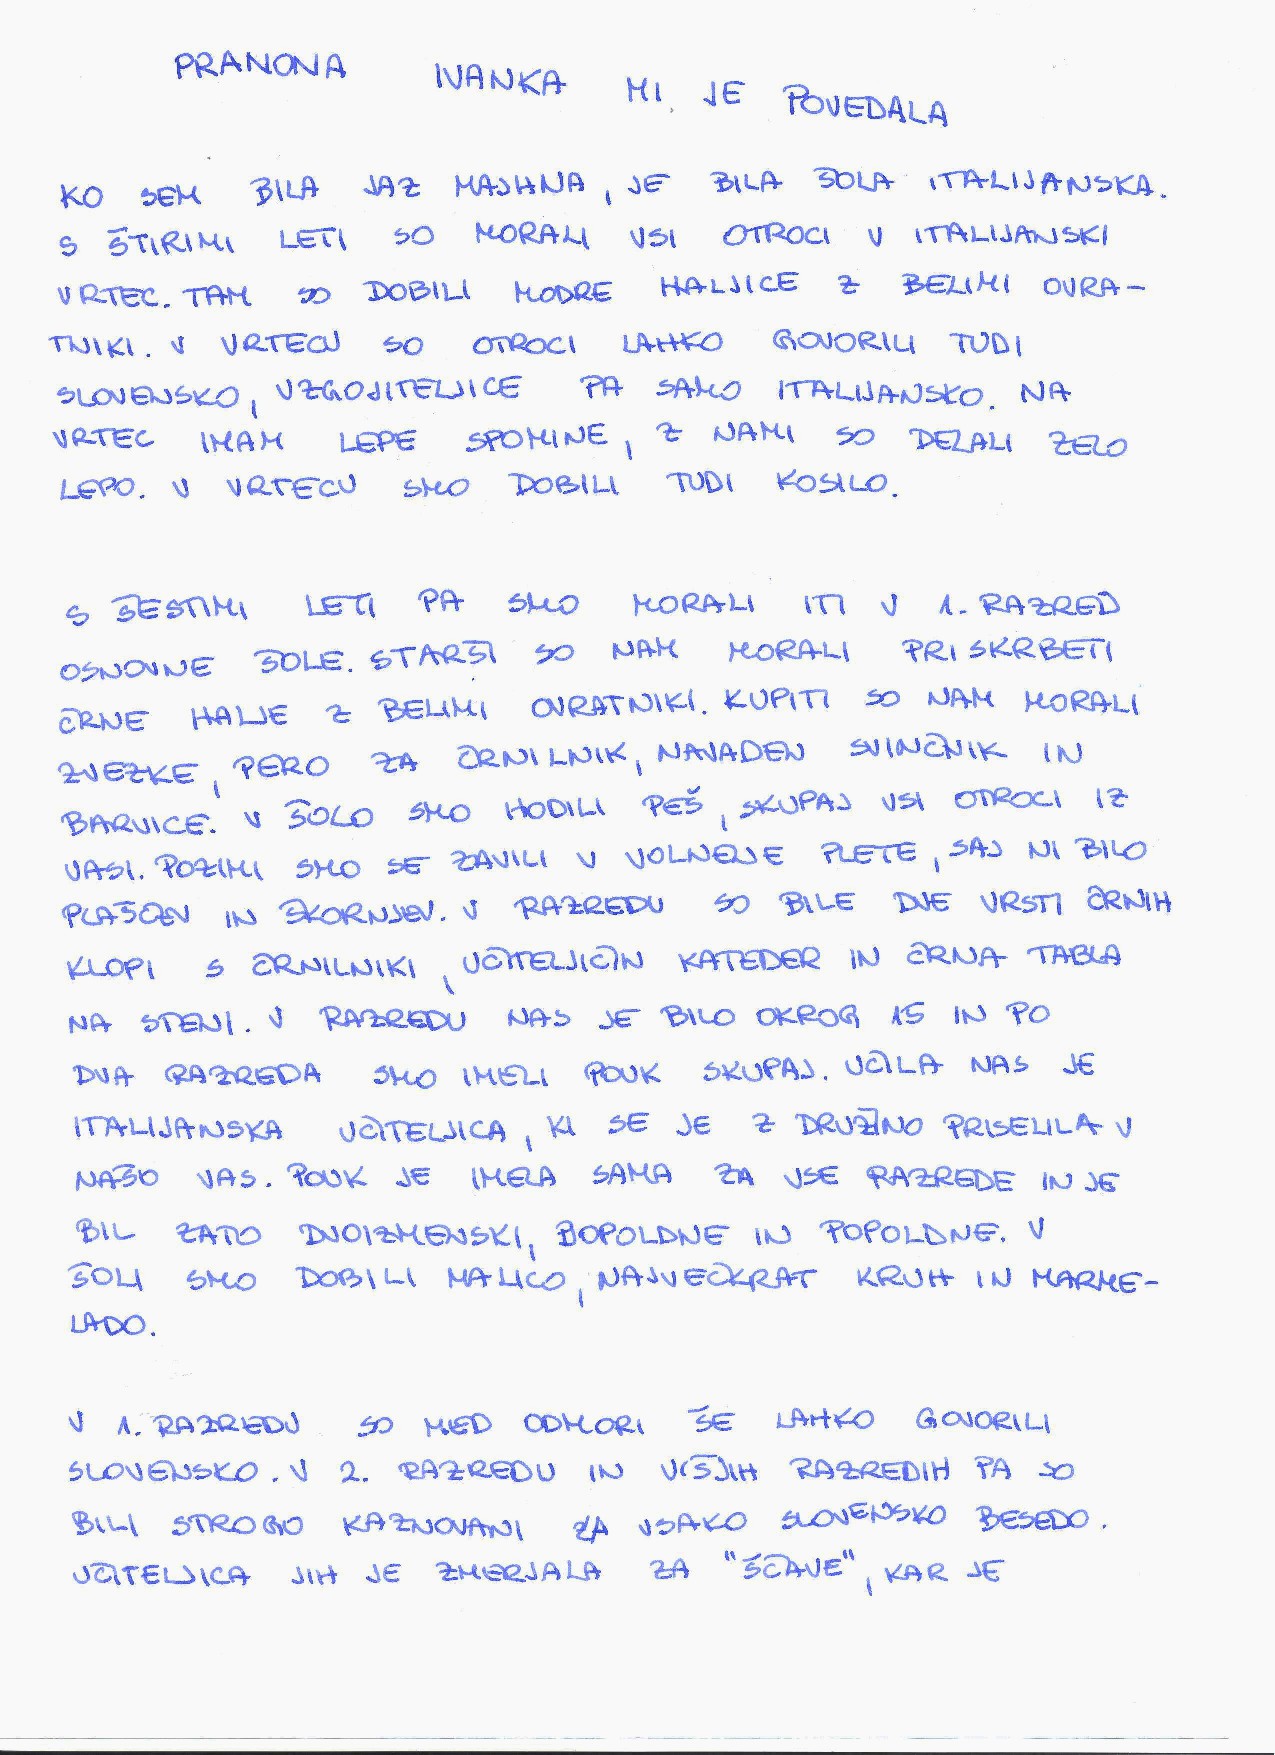 PRANONA IVANKA MI JE POVEDALA
KO SEM BILA JAZ MAJHNA, JE BILA ŠOLA ITALIJANSKA.
S ŠTIRIMI LETI SO MORALI VSI OTROCI V ITALIJANSKI
VRTEC. TAM SO DOBILI MODRE HALJICE Z BELIMI OVRA-
TNIKI. V VRTECU SO OTROCI LAHKO GOVORILI TUDI
SLOVENSKO, VZGOJITELJICE PA SAMO ITALIJANSKO. NA
VRTEC IMAM LEPE SPOMINE, Z NAMI SO DELALI ZELO
LEPO. V VRTECU SMO DOBILI TUDI KOSILO.
S ŠESTIMI LETI PA SMO MORALI ITI V 1. RAZRED
OSNOVNE ŠOLE. STARŠI SO NAM MORALI PRISKRBETI
ČRNE HALJE Z BELIMI OVRATNIKI. KUPITI SO NAM MORALI
ZVEZKE, PERO ZA ČRNILNIK, NAVADEN SVINČNIK IN
BARVICE. V ŠOLO SMO HODILI PEŠ, SKUPAJ VSI OTROCI IZ
VASI. POZIMI SMO SE ZAVILI V VOLNENE PLETE, SAJ NI BILO
PLAŠČEV IN ŠKORNJEV. V RAZREDU SO BILE DVE VRSTI ČRNIH
KLOPI S ČRNILNIKI, UČITELJIČIN KATEDER IN ČRNA TABLA
NA STENI. V RAZREDU NAS JE BILO OKROG 15 IN PO
DVA RAZREDA SMO IMELI POUK SKUPAJ. UČILA NAS JE
ITALIJANSKA UČITELJICA, KI SE JE Z DRUŽINO PRISELILA V
NAŠO VAS. POUK JE IMELA SAMA ZA VSE RAZREDE IN JE
BIL ZATO DVOIZMENSKI, DOPOLDNE IN POPOLDNE. V
ŠOLI SMO DOBILI MALICO, NAJVEČKRAT KRUH IN MARME-
LADO.
V 1. RAZREDU SO MED ODMORI ŠE LAHKO GOVORILI
SLOVENSKO. V 2. RAZREDU IN VIŠJIH RAZREDIH PA SO
BILI STROGO KAZNOVANI ZA VSAKO SLOVENSKO BESEDO.
UČITELJICA JIH JE ZMERJALA ZA "ŠČAVE", KAR JE